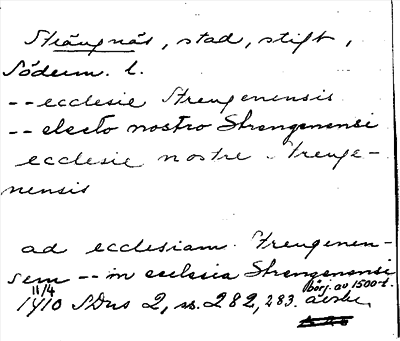 Strängnäs, stad, stift,
Söderm. l.
-- ecclesie Strengenensis
-- electo nostro Strengenensi
ecclesie nostre Strenge-
nensis
ad ecclesiam Strengenen-
sem -- in ecclesia Strengenensi
11/4 börj. av 1500-t.
1410 SDns 2, s. 282, 283. avskr.